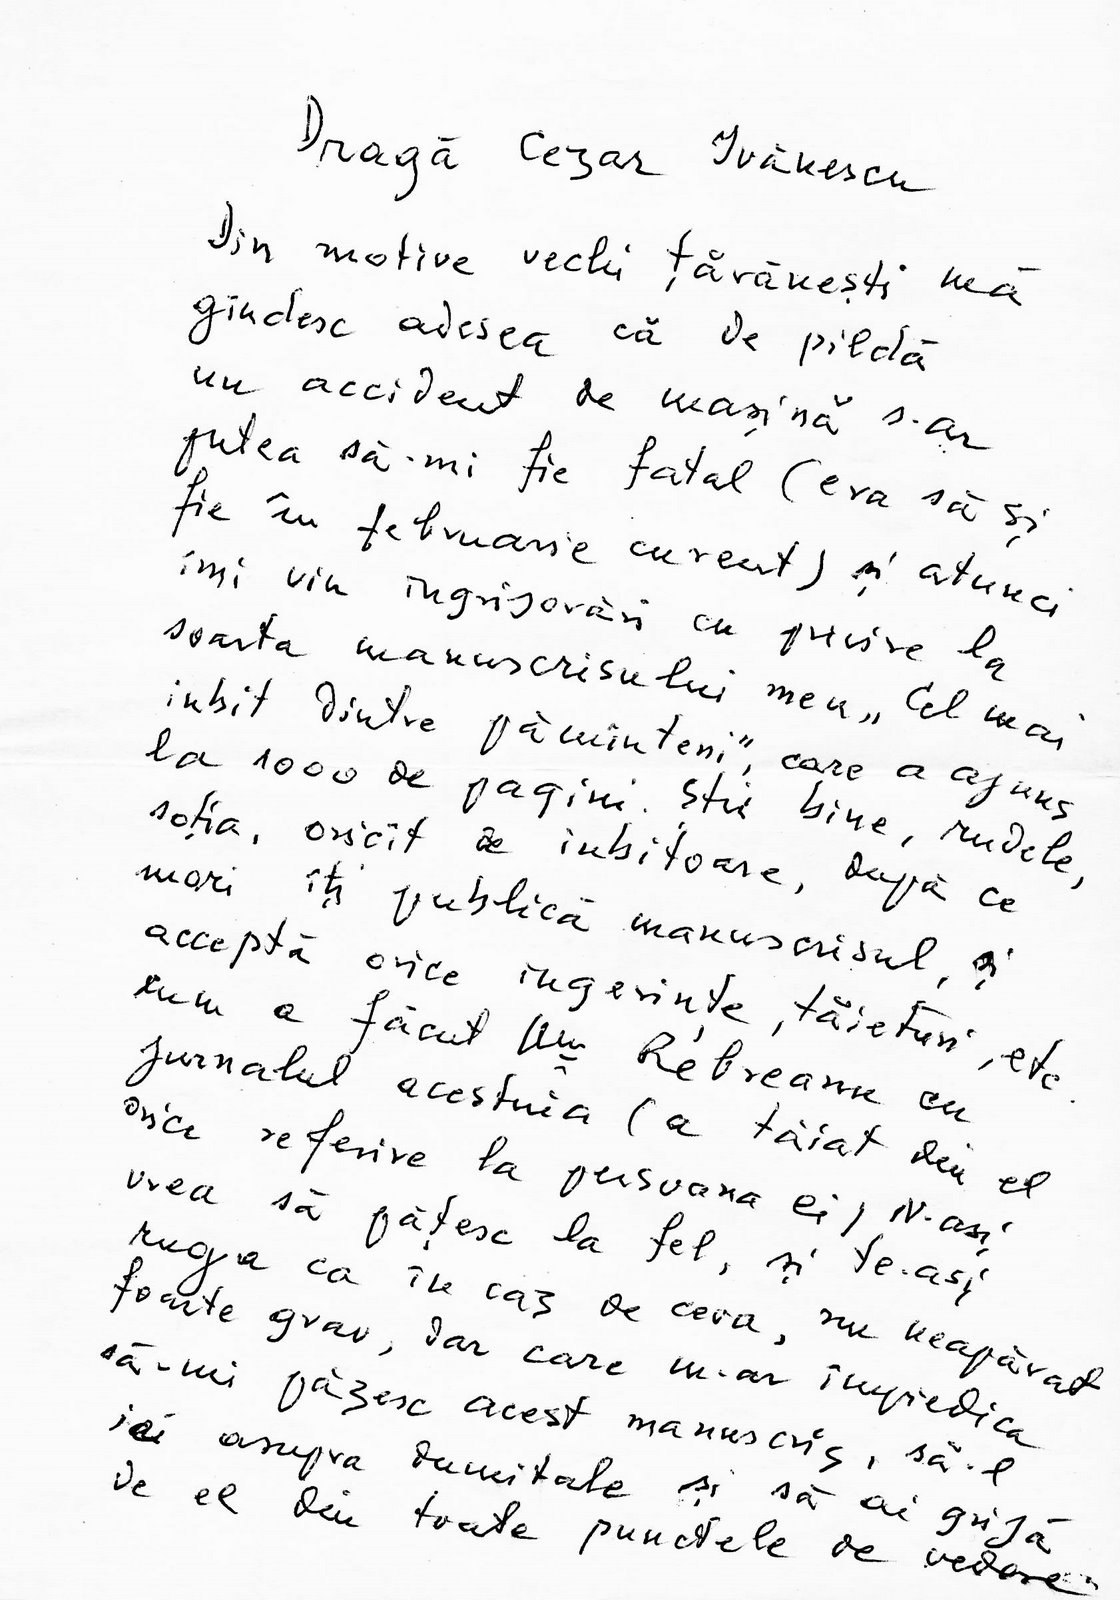 Dragă Cezar Ivănescu
Din motive vechi țărănești mă
gîndesc adesea că de pildă
un accident de mașină s-ar
putea să-mi fie fatal (era să și
fie în februarie curent) și atunci
îmi vin îngrijorări cu privire la
soarta manuscrisului meu „Cel mai
iubit dintre pămînteni", care a ajuns
la 1000 de pagini. Știi bine, rudele,
soția, oricît de iubitoare, după ce
mori îți publică manuscrisul, și
acceptă orice ingerințe, tăieturi, etc.
cum a făcut Rebreanu cu
jurnalul acestuia (a tăiat din el
orice referire la persoana ei) N-ași
vrea să pățesc la fel, și te-ași
ruga ca în caz de ceva, nu neapărat
foarte grav, dar care m-ar împiedica
să-mi păzesc acest manuscris, să-l
iei asupra dumitale și să ai grijă
de el din toate punctele de vedere